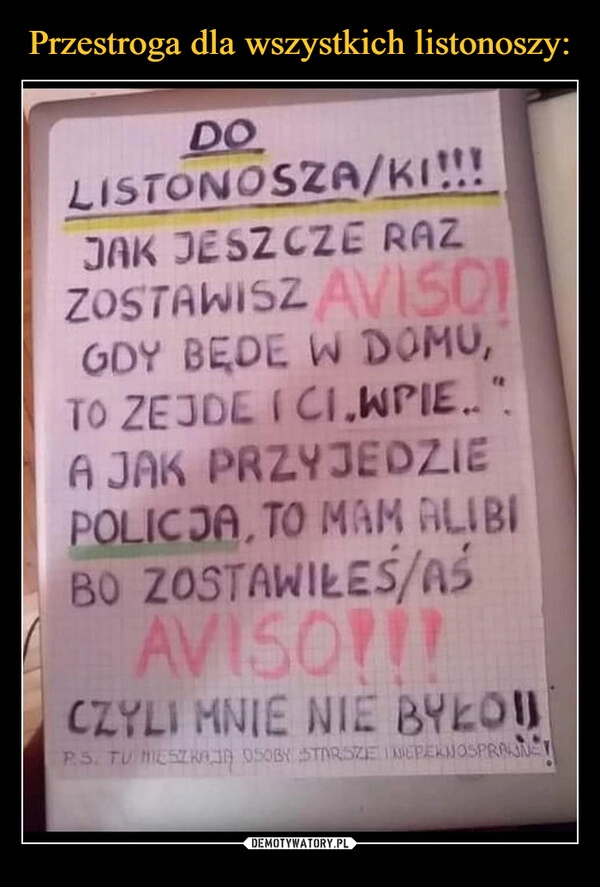 Przestroga dla wszystkich listonoszy:
DO
LISTONOSZA/KI!!!
JAK JESZCZE RAZ
ZOSTAWISZ AVISO!
GDY BĘDE W DOMU,
TO ZEJDE I CI „WPIE.. ".
A JAK PRZYJEDZIE
POLICJA, TO MAM ALIBI
BO ZOSTAWIŁEŚ/AŚ
AVISO!!!
CZYLI MNIE NIE BYŁO!!
P.S. TU MIESZKAJĄ OSOBY STARSZE I NIEPEŁNOSPRAWNE!
DEMOTYWATORY.PL